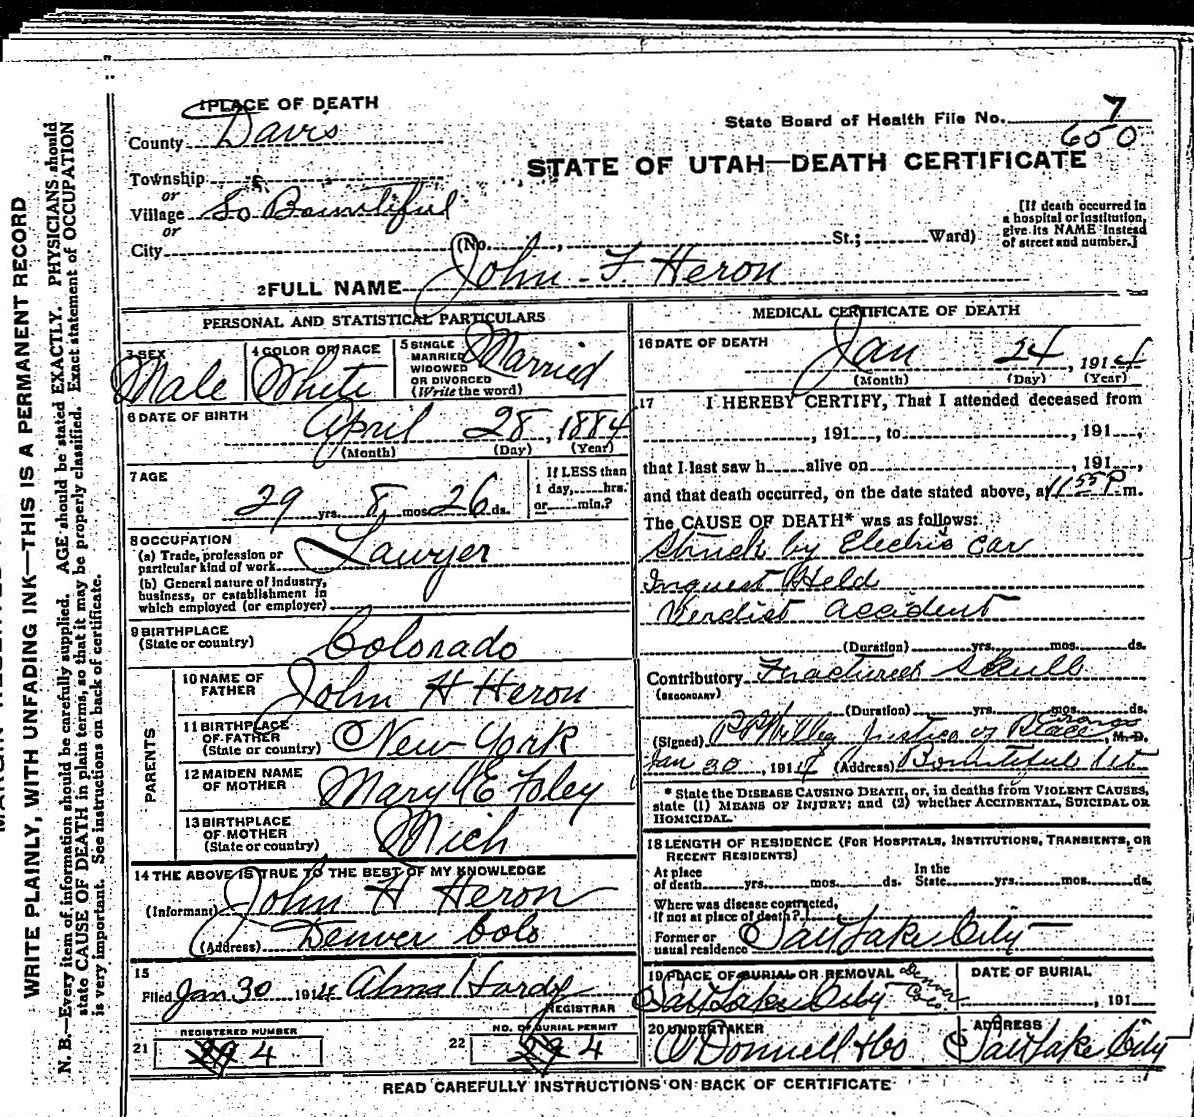 1 PLACE OF DEATH
County Davis
Township
or
Village So Bountiful
or
City (No. , St.; Ward)
State Board of Health File No. 7
650
STATE OF UTAH—DEATH CERTIFICATE
[If death occurred in
a hospital or institution,
give its NAME instead
of street and number.]
2 FULL NAME John F. Heron
PERSONAL AND STATISTICAL PARTICULARS
3 SEX
Male
4 COLOR OR RACE
White
5 SINGLE
MARRIED
WIDOWED
OR DIVORCED
(Write the word)
Married
6 DATE OF BIRTH
April 28, 1884
(Month) (Day) (Year)
7 AGE
29 yrs. 8 mos. 26 ds.
If LESS than
1 day, hrs.
or min.?
8 OCCUPATION
(a) Trade, profession or
particular kind of work Lawyer
(b) General nature of industry,
business, or establishment in
which employed (or employer)
9 BIRTHPLACE
(State or country) Colorado
PARENTS
10 NAME OF
FATHER John H Heron
11 BIRTHPLACE
OF FATHER
(State or country) New York
12 MAIDEN NAME
OF MOTHER Mary E Foley
13 BIRTHPLACE
OF MOTHER
(State or country) Mich
14 THE ABOVE IS TRUE TO THE BEST OF MY KNOWLEDGE
(Informant) John H Heron
(Address) Denver Colo
15
Filed Jan 30 1914 Alma Hardy
REGISTRAR
REGISTERED NUMBER
21 4
NO. OF BURIAL PERMIT
22 4
MEDICAL CERTIFICATE OF DEATH
16 DATE OF DEATH
Jan 24, 1914
(Month) (Day) (Year)
17 I HEREBY CERTIFY, That I attended deceased from
, 191 , to , 191 ,
that I last saw h alive on , 191 ,
and that death occurred, on the date stated above, at 11 55 P m.
The CAUSE OF DEATH* was as follows:
Struck by Electric Car
Inquest Held
Verdict accident
(Duration) yrs. mos. ds.
Contributory Fractured Skull
(SECONDARY)
(Duration) yrs. mos. ds.
(Signed) Justice of Peace M.D.
Jan 30, 1914 (Address) Bountiful Ut
* State the DISEASE CAUSING DEATH, or, in deaths from VIOLENT CAUSES,
state (1) MEANS OF INJURY; and (2) whether ACCIDENTAL, SUICIDAL OR
HOMICIDAL.
18 LENGTH OF RESIDENCE (FOR HOSPITALS, INSTITUTIONS, TRANSIENTS, OR
RECENT RESIDENTS)
At place
of death yrs. mos. ds.
In the
State yrs. mos. ds.
Where was disease contracted,
if not at place of death?
Former or
usual residence Salt Lake City
19 PLACE OF BURIAL OR REMOVAL Denver
Colo.
Salt Lake City
DATE OF BURIAL
, 191
20 UNDERTAKER
O'Donnell & Co
ADDRESS
Salt Lake City
READ CAREFULLY INSTRUCTIONS ON BACK OF CERTIFICATE
WRITE PLAINLY, WITH UNFADING INK—THIS IS A PERMANENT RECORD
N. B.—Every item of information should be carefully supplied. AGE should be stated EXACTLY. PHYSICIANS should
state CAUSE OF DEATH in plain terms, so that it may be properly classified. Exact statement of OCCUPATION
is very important. See instructions on back of certificate.